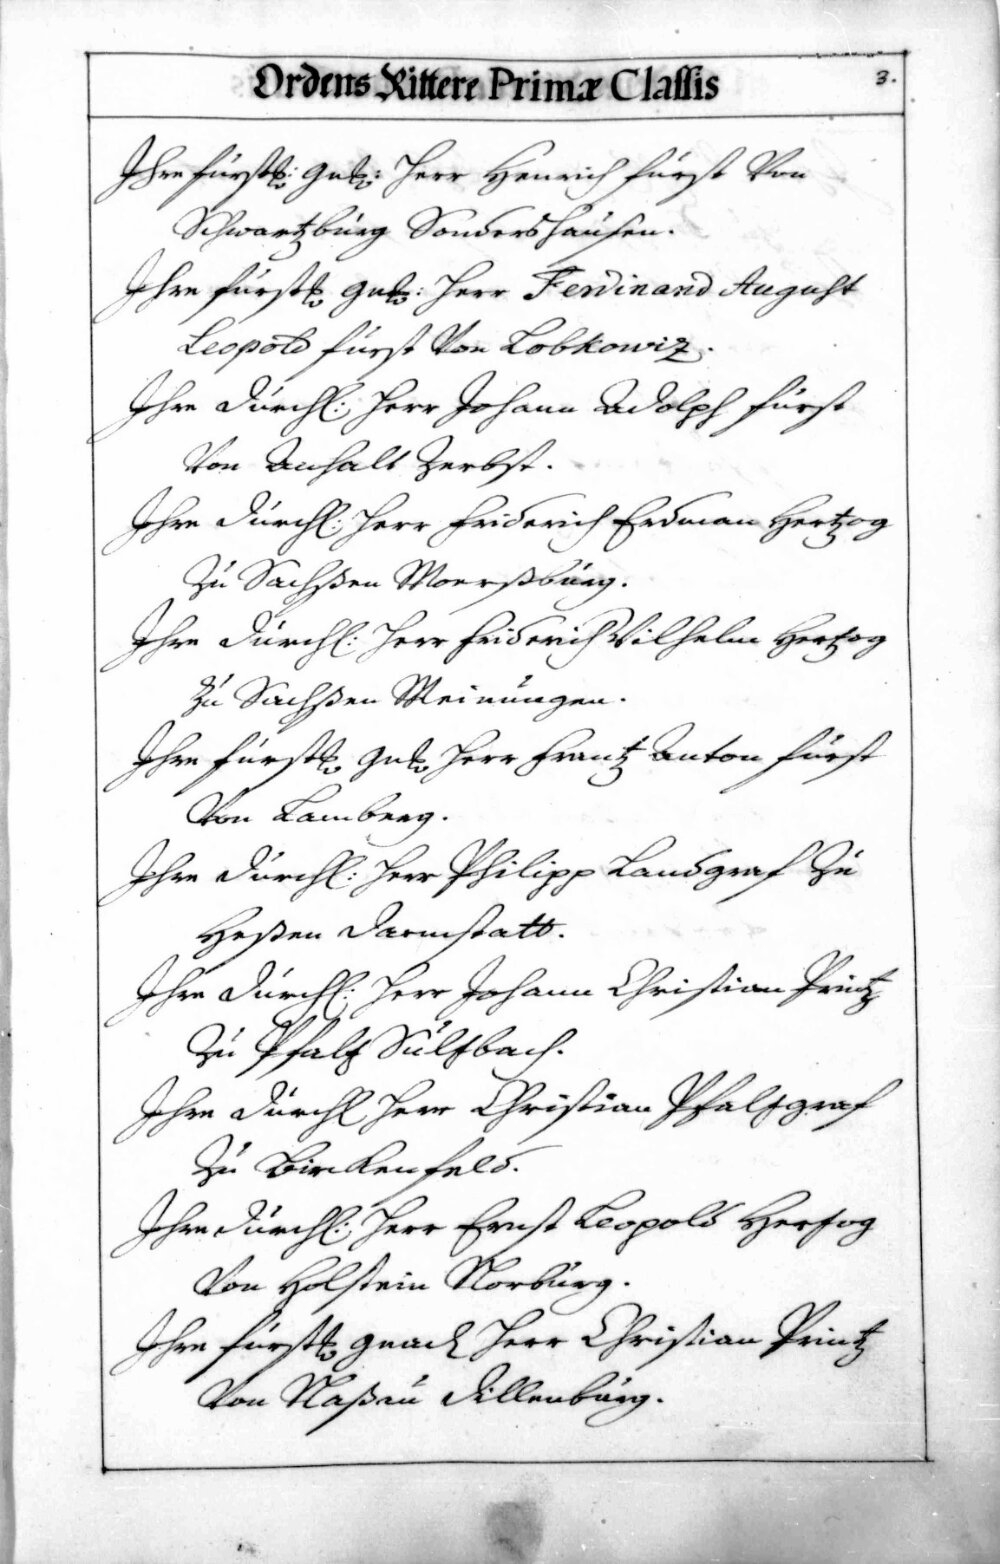 Ordens Rittere Primæ Classis
3.
Ihre fürstl: Gnd: Herr Henrich fürst Von
Schwartzburg Sondershausen.
Ihre fürstl: Gnd: Herr Ferdinand August
Leopold fürst Von Lobkowiz.
Ihre Durchl: Herr Johann Adolph fürst
Von Anhalt Zerbst.
Ihre Durchl: Herr Friderich Erdman Hertzog
Zu Sachßen Moerßburg.
Ihre Durchl: Herr Friderich Wilhelm Hertzog
Zu Sachßen Meinungen.
Ihre fürstl: Gnd: Herr Frantz Anton fürst
Von Lamberg.
Ihre Durchl: Herr Philipp Landgraf Zu
Heßen Darmstatt.
Ihre Durchl: Herr Johann Christian Printz
Zu Pfaltz Sultzbach.
Ihre Durchl Herr Christian Pfaltzgraf
Zu Birckenfeld.
Ihre Durchl: Herr Ernst Leopold Hertzog
Von Holstein Norburg.
Ihre fürstl: Gnad Herr Christian Printz
Von Naßau Dillenburg.